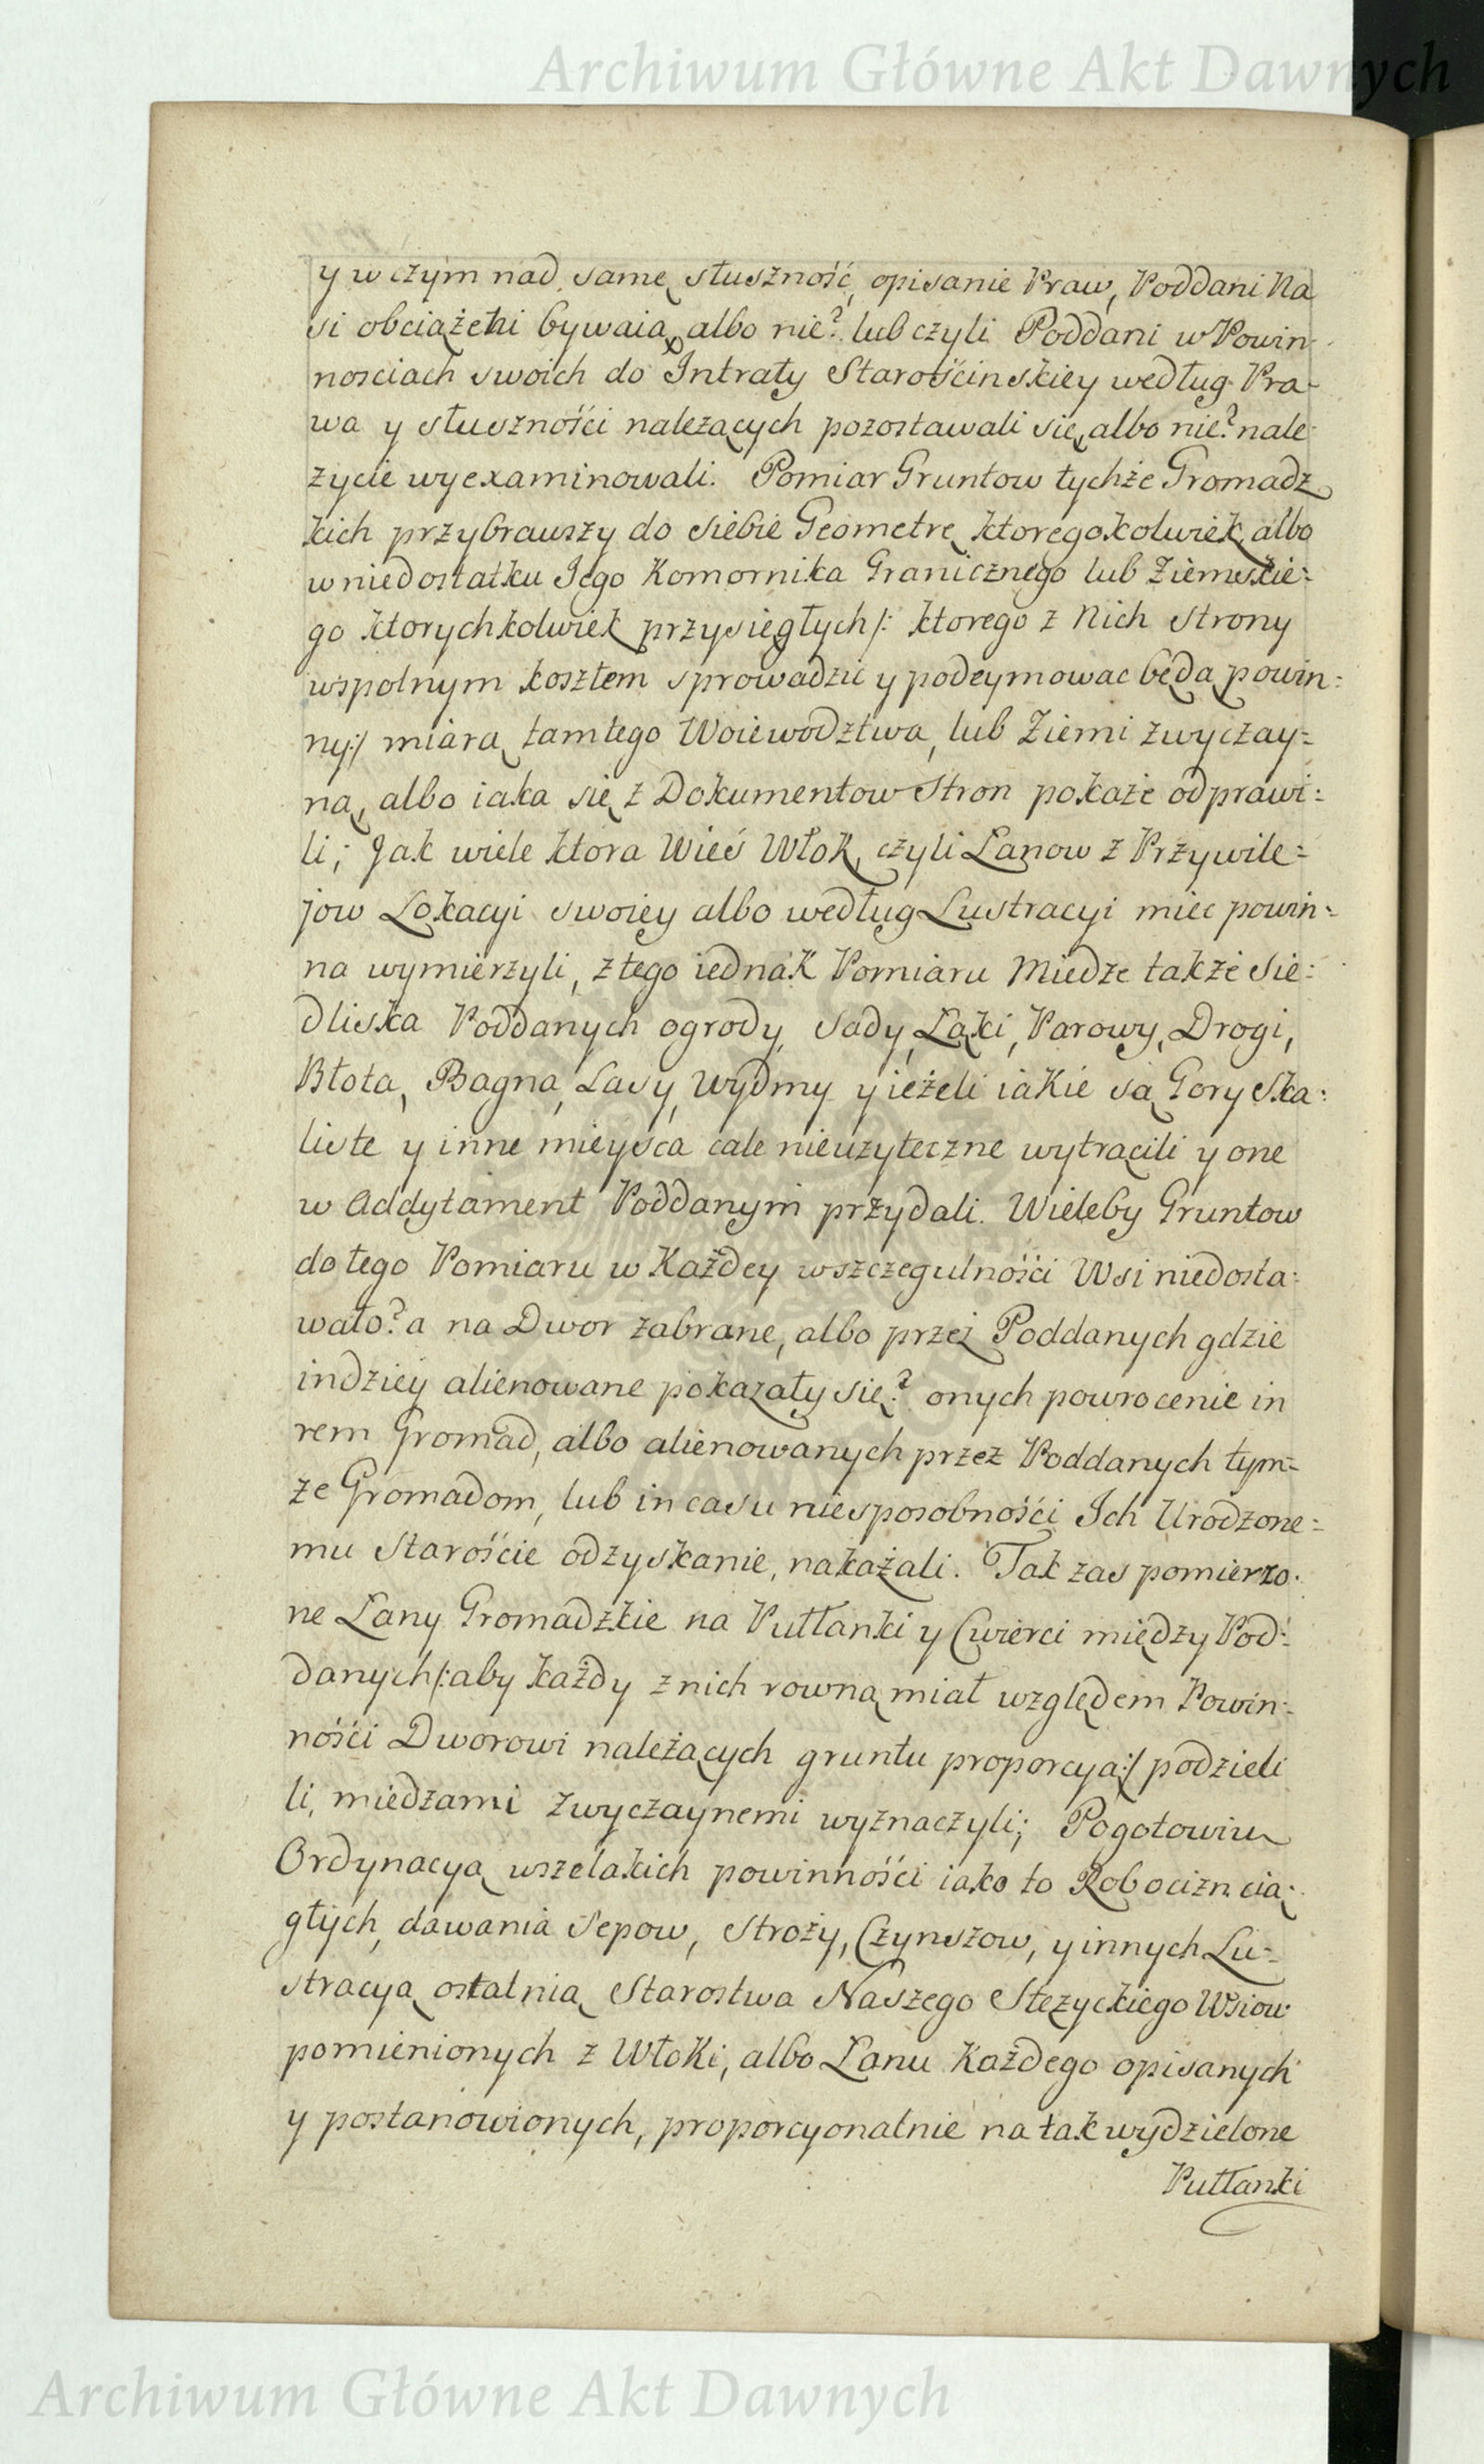 Archiwum Główne Akt Dawnych
y w czym nad samę słuszność, opisanie Praw, Poddani Na
si obciążeni bywaią, albo nie? lub czyli Poddani w Powin-
nosciach swoich do Intraty Starościnskiey według Pra-
wa y słusznośći należących pozostawali się, albo nie? nale-
życie wyexaminowali. Pomiar Gruntow tychże Gromadz
kich przybrawszy do siebie Geometrę ktoregokolwiek albo
w niedostatku Jego Komornika Granicznego lub Ziemskie:
go ktorychkolwiek przysięgłych /: ktorego z Nich strony
wspolnym kosztem sprowadzić y podeymowac będą powin:
ny:/ miarą tamtego Woiewodztwa, lub Ziemi zwyczay:
ną, albo iaka się z Dokumentow Stron pokaże odprawi:
li; Jak wiele ktora Wieś Włok, czyli Łanow z Przywile:
jow Lokacyi swoiey albo według Lustracyi miec powin:
na wymierzyli, z tego iednak Pomiaru Miedze także Sie:
dliska Poddanych ogrody, Sady, Łąki, Parowy, Drogi,
Błota, Bagna, Lasy, Wydmy y ieżeli iakie są Gory Ska:
liste y inne mieysca cale nieużyteczne wytrącili y one
w Addytament Poddanym przydali. Wieleby Gruntow
do tego Pomiaru w Każdey wszczegulnośći Wsi niedosta:
wało? a na Dwor zabrane, albo przez Poddanych gdzie
indziey alienowane pokazały się? onych powrocenie in
rem Gromad, albo alienowanych przez Poddanych tym-
że Gromadom, lub in casu niesposobnośći Ich Urodzone:
mu Starośćie odzyskanie, nakażali. Tak zas pomierzo:
ne Łany Gromadzkie na Pułłanki y Cwierci między Pod:
danych /: aby każdy z nich rowną miał względem Powin:
nośći Dworowi należących gruntu proporcyą :/ podzieli
li, miedzami zwyczaynemi wyznaczyli; Pogotowiu
Ordynacyą wszelakich powinnośći iako to Robocizn cią:
głych, dawania Sepow, Stroży, Czynszow, y innych Lu:
stracyą ostatnią Starostwa Naszego Stężyckiego Wsiow
pomienionych z Włoki, albo Łanu Każdego opisanych
y postanowionych, proporcyonalnie na tak wydzielone
Pułłanki
Archiwum Główne Akt Dawnych